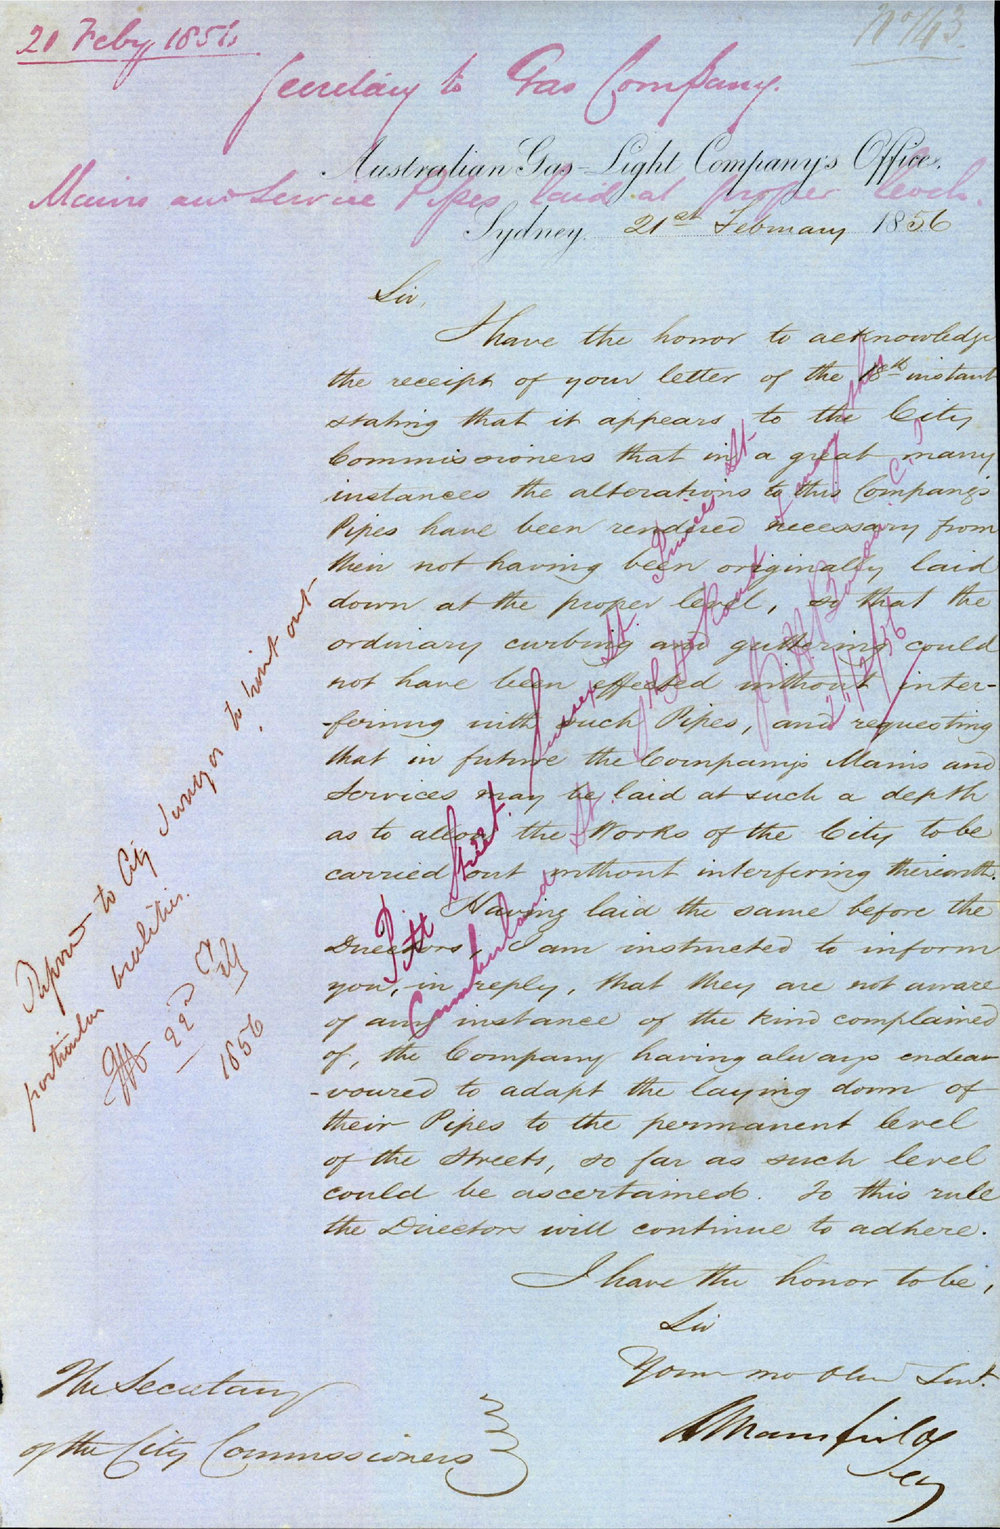 21 Feby 1856
No 143.
Secretary to Gas Company.
Australian Gas-Light Company's Office.
Mains and Service Pipes laid at proper levels.
Sydney. 21st February 1856
Sir,
I have the honor to acknowledge
the receipt of your letter of the 18th instant
stating that it appears to the City
Commissioners that in a great many
instances the alterations to this Company's
Pipes have been rendered necessary from
their not having been originally laid
down at the proper level, so that the
ordinary curbing and guttering could
not have been effected without inter-
-fering with such Pipes, and requesting
that in future the Company's Mains and
Services may be laid at such a depth
as to allow the Works of the City to be
carried out without interfering therewith.
Having laid the same before the
Directors, I am instructed to inform
you, in reply, that they are not aware
of any instance of the kind complained
of, the Company having always endea-
-voured to adapt the laying down of
their Pipes to the permanent level
of the Streets, so far as such level
could be ascertained. To this rule
the Directors will continue to adhere.
I have the honor to be,
Sir
Your mo Obed Servt.
Mansfield
Secy
The Secretary
of the City Commissioners
Refer to City Surveyor to point out
particular localities.
22d Feby
1856
Pitt Street. Sussex St. Princes St
Cumberland St.
21/2/56